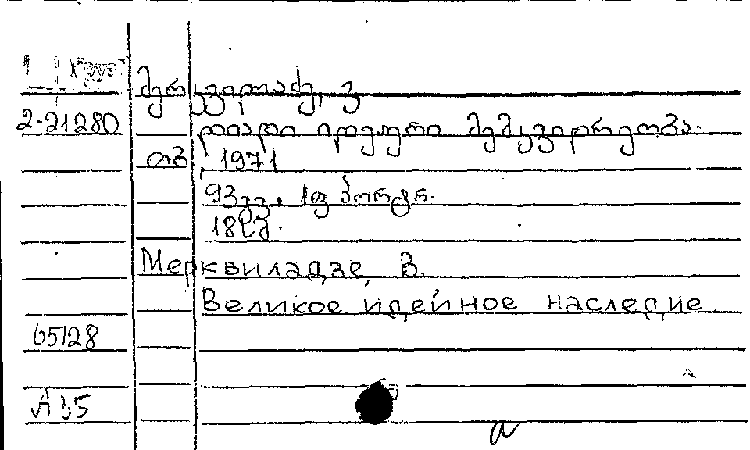 მერკვილაძე, ვ.
2-21280 დიადი იდეური მემკვიდრეობა.
თბ, 1971
93გვ. 1ფ პორტრ.
18სმ.
Мерквиладзе, В.
Великое идейное наследие
65128